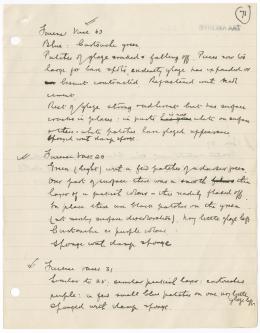 71
Faience Vase 43
Blue: Cartouche green
Patches of glaze soaked & falling off. Pieces now too
large for bare spots evidently glaze has expanded or
cement contracted. Refastened with
cement.
Rest of glaze strong & adherent but has surface
cracks in places: in parts white on surface
others white patches have glazed appearance
Sponged with damp sponge
Faience Vase 20
Green (light) with a few patches of darker green.
One part of surface there was a smooth thin
layer of a
In places there are black patches on the green
(not merely surface discoloration). Very little glaze left.
Cartouche in purple
Sponge with damp sponge
Faience vase 31
Similar to 20: similar layer: cartouche
purple: a few small blue patches on one
glaze left
Sponged with damp sponge.